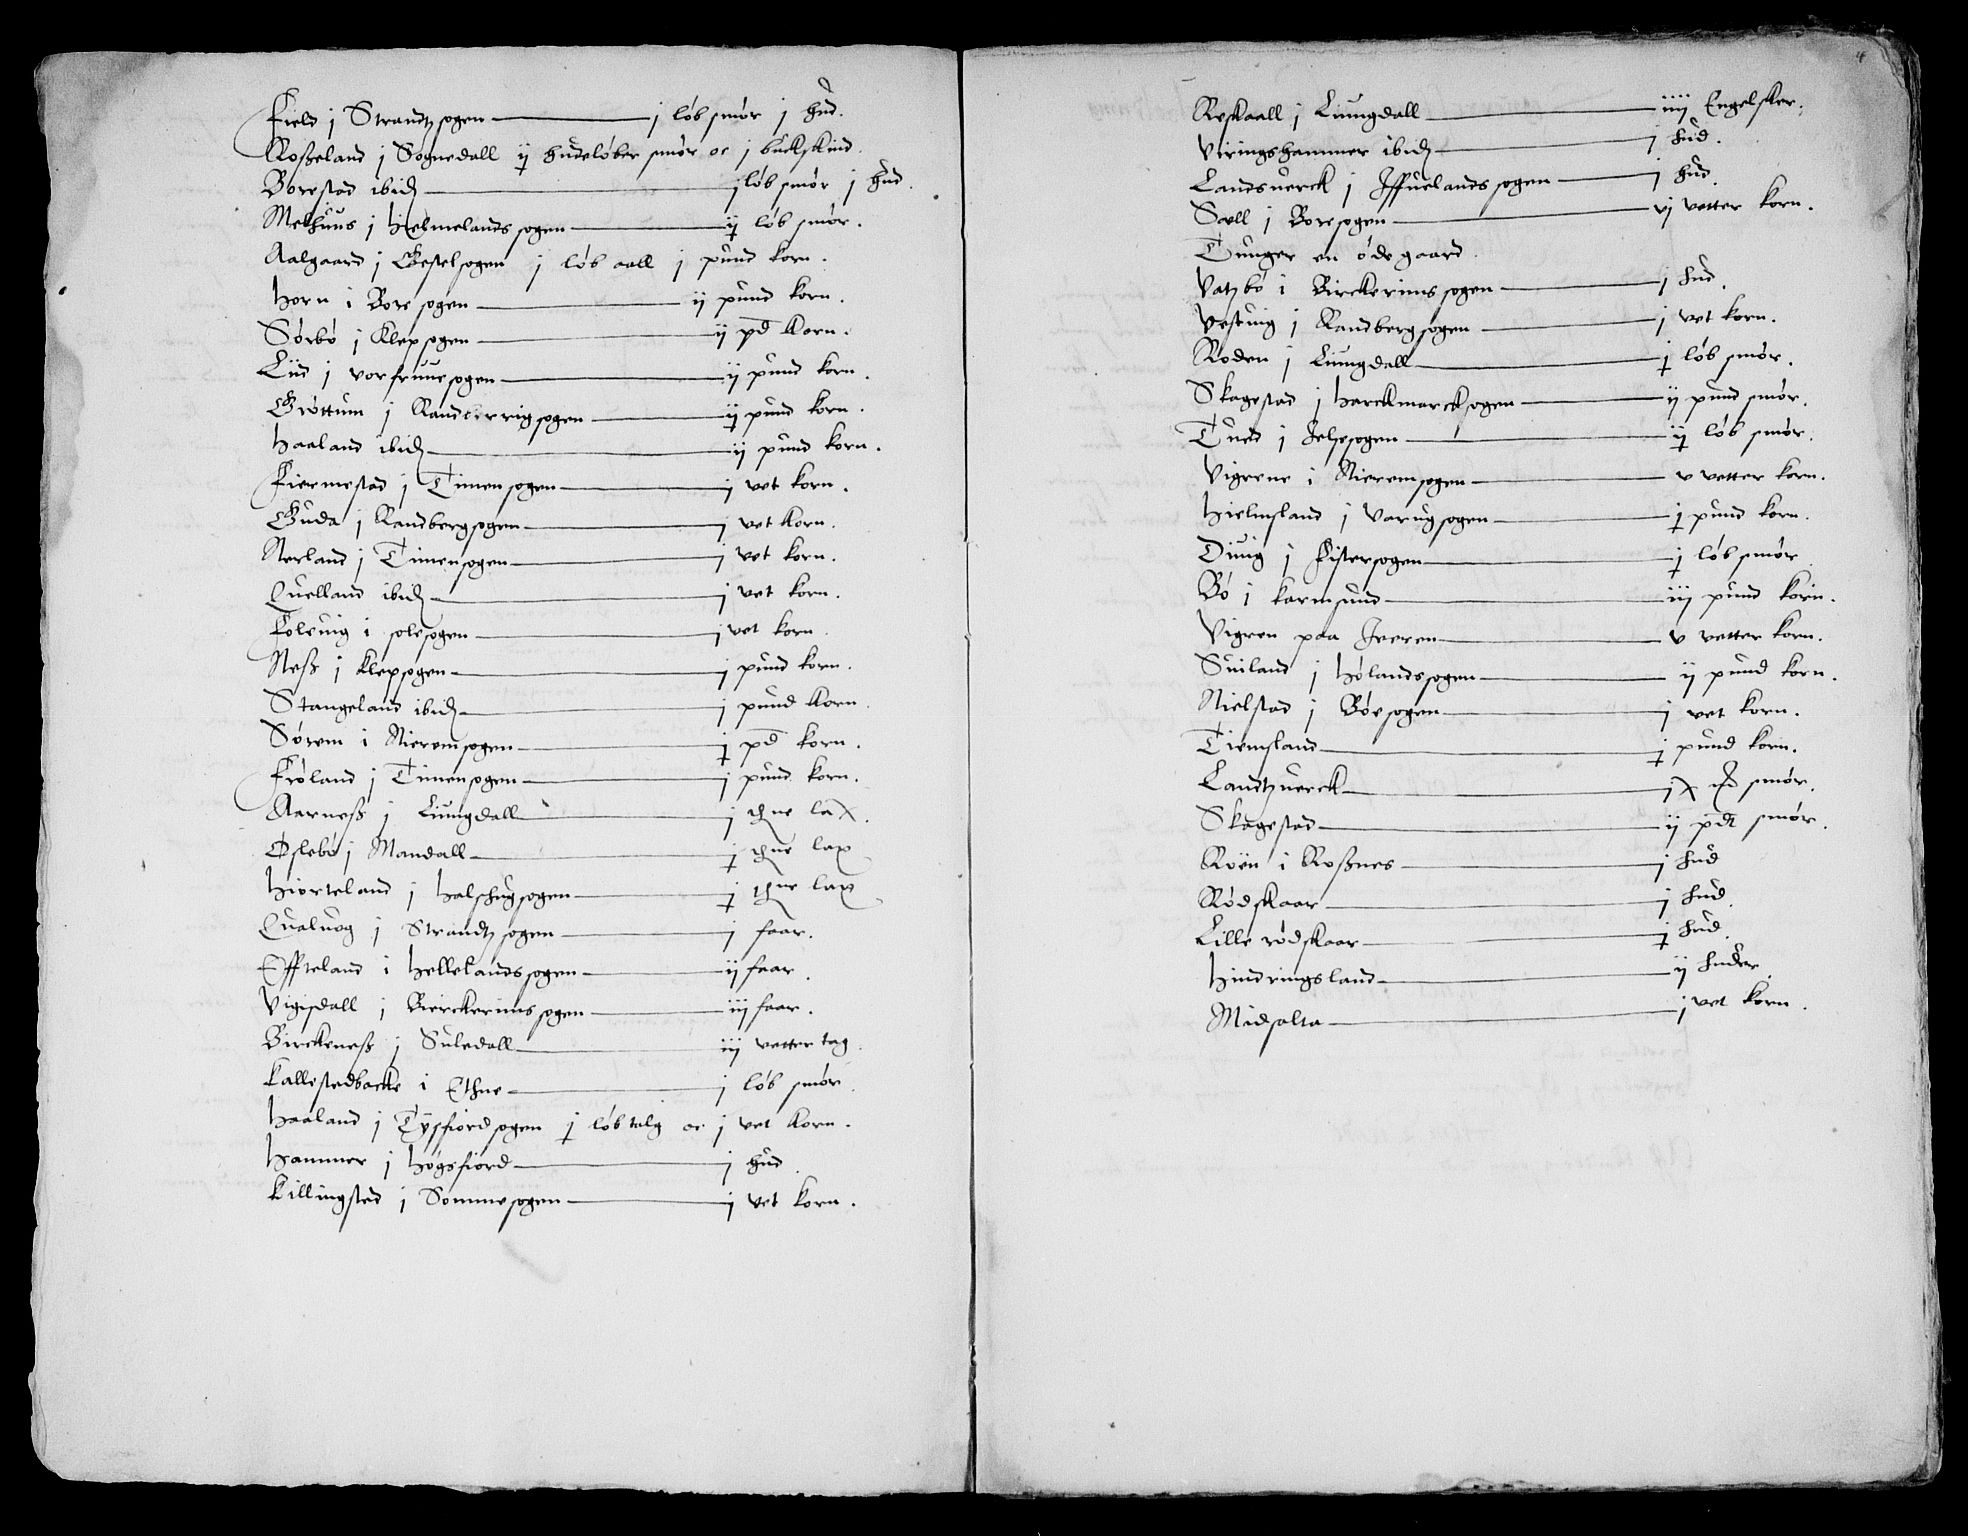 Field j Strandtzsogen — j løb smør j hud.
Roszeland j Sognedall ij hudeløber smør oc j buckskind.
Borestad ibid — j løb smør j hud.
Melhuus j Helmelandssogen — ij løb smør.
Aalgaard j Gestelsogen j løb aall j pund korn.
Horn i Boresogen — ij pund korn.
Sørbø j Klepsogen — ij pd korn.
Liid j vorfruuesogen — ij pund korn.
Grøttum j sogen — ij pund korn.
Haaland ibid — ij pund korn.
Fiermestad j Timensogen — j vet korn.
Guda j Randbergsogen — j vet korn.
Nerland j Timensogen — j vet korn.
Quelland ibid — j vet korn.
Koluig i solesogen — j vet korn.
Nesz j Klepsogen — j pund korn.
Stangeland ibid — j pund korn.
Sørem i Nieremsogen — j pd korn.
Frøland j Timensogen — j pund korn.
Aarnesz j Liungdall — j tne lax.
Øslebø j Mandall — j tne lax
Hiorteland j Halshugsogen — j tne lax
Qualuog j Strandtzsogen — j faar.
Effteland i Hellelandssogen — ij faar.
Vigisdall j Bierckerimssogen — iij faar.
Birckenesz j Suledall — iij vetter tag.
Kallestedbacke i Ethne — j løb smør.
Haaland j Tysfiordsogen j løb talg oc j vet korn.
Hammer j Høgsfiord — j hud.
Killingstad j Sommesogen — j vet korn.
4
Reskaall j Liungdall — iiij Engelsker.
Viringshammer ibid — j hud.
Landsuerck j Iffuelandssogen — j hud.
Sæll j Boresogen — vj vetter korn.
Tunger en øde gaard.
Vatzbø i Birckerimssogen — j hud.
Vestuig j Randbergsogen — j vet korn.
Roden j Liungdall — j løb smør.
Skagestad j Harckmarcksogen — ij pund smør.
Tued i Jelsesogen — ij løb smør.
Vigrene i Nieremsogen — v vetter korn.
Hielmsland j Varugsogen — j pund korn.
Diuig j Fistersogen — j løb smør
Bø i Karmsund — iij pund korn.
Vigren paa Jeeren — v vetter korn.
Suiland j Hølandssogen — ij pund korn.
Nielstad j Bøesogen — j vet korn.
Tiemsland — j pund korn.
Landtzuerck — smør.
Skagestad — ij pdt smør.
Røën i Rosznes — j hud
Rødskaar — j hud.
Lille rødskaar — j hud.
Hindringsland — ij huder.
Midsalta — j vet korn.